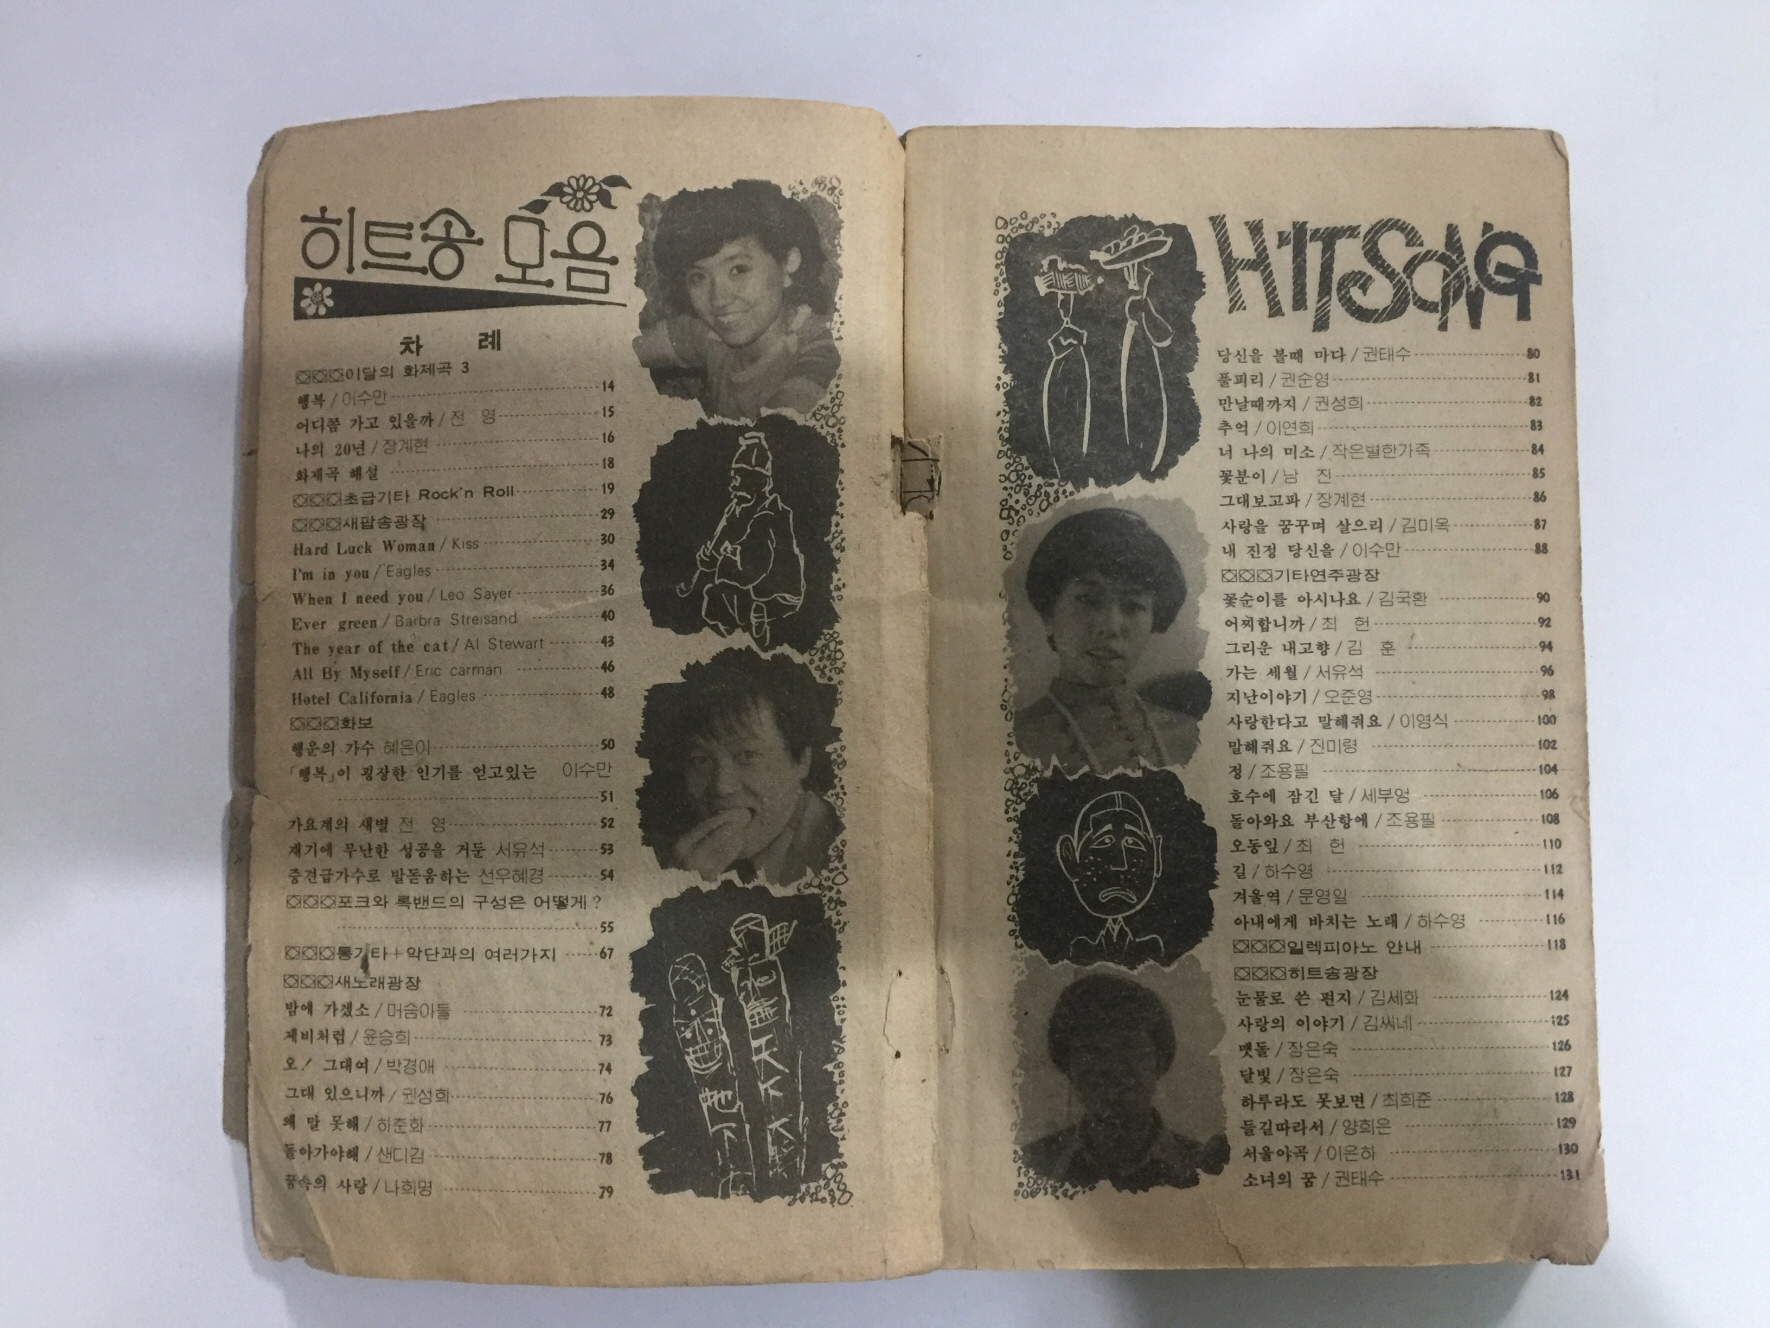 히트송 모음
차 례
이달의 화제곡 3
행복/이수만 14
어디쯤 가고 있을까/전 영 15
나의 20년/장계현 16
화제곡 해설 18
초급기타 Rock'n Roll 19
새팝송광장 29
Hard Luck Woman/Kiss 30
I'm in you/Eagles 34
When I need you/Leo Sayer 36
Ever green/Barbra Streisand 40
The year of the cat/Al Stewart 43
All By Myself/Eric carman 46
Hotel California/Eagles 48
화보
행운의 가수 혜은이 50
「행복」이 굉장한 인기를 얻고있는 이수만
51
가요계의 새별 전 영 52
재기에 무난한 성공을 거둔 서유석 53
중견급가수로 발돋움하는 선우혜경 54
포크와 록밴드의 구성은 어떻게?
55
통기타+악단과의 여러가지 67
새노래광장
밤에 가겠소/머슴아들 72
제비처럼/윤승희 73
오! 그대여/박경애 74
그대 있으니까/권성희 76
왜 말 못해/하준화 77
돌아가야해/샌디김 78
꿈속의 사랑/나희명 79
HIT SONG
당신을 볼때 마다/권태수 80
풀피리/권순영 81
만날때까지/권성희 82
추억/이연희 83
너 나의 미소/작은별한가족 84
꽃분이/남 진 85
그대보고파/장계현 86
사랑을 꿈꾸며 살으리/김미옥 87
내 진정 당신을/이수만 88
기타연주광장
꽃순이를 아시나요/김국환 90
어찌합니까/최 헌 92
그리운 내고향/김 훈 94
가는 세월/서유석 96
지난이야기/오준영 98
사랑한다고 말해줘요/이영식 100
말해줘요/진미령 102
정/조용필 104
호수에 잠긴 달/세부엉 106
돌아와요 부산항에/조용필 108
오동잎/최 헌 110
길/하수영 112
겨울역/문영일 114
아내에게 바치는 노래/하수영 116
일렉피아노 안내 118
히트송광장
눈물로 쓴 편지/김세화 124
사랑의 이야기/김씨네 125
맷돌/장은숙 126
달빛/장은숙 127
하루라도 못보면/최희준 128
들길따라서/양희은 129
서울야곡/이은하 130
소녀의 꿈/권태수 131